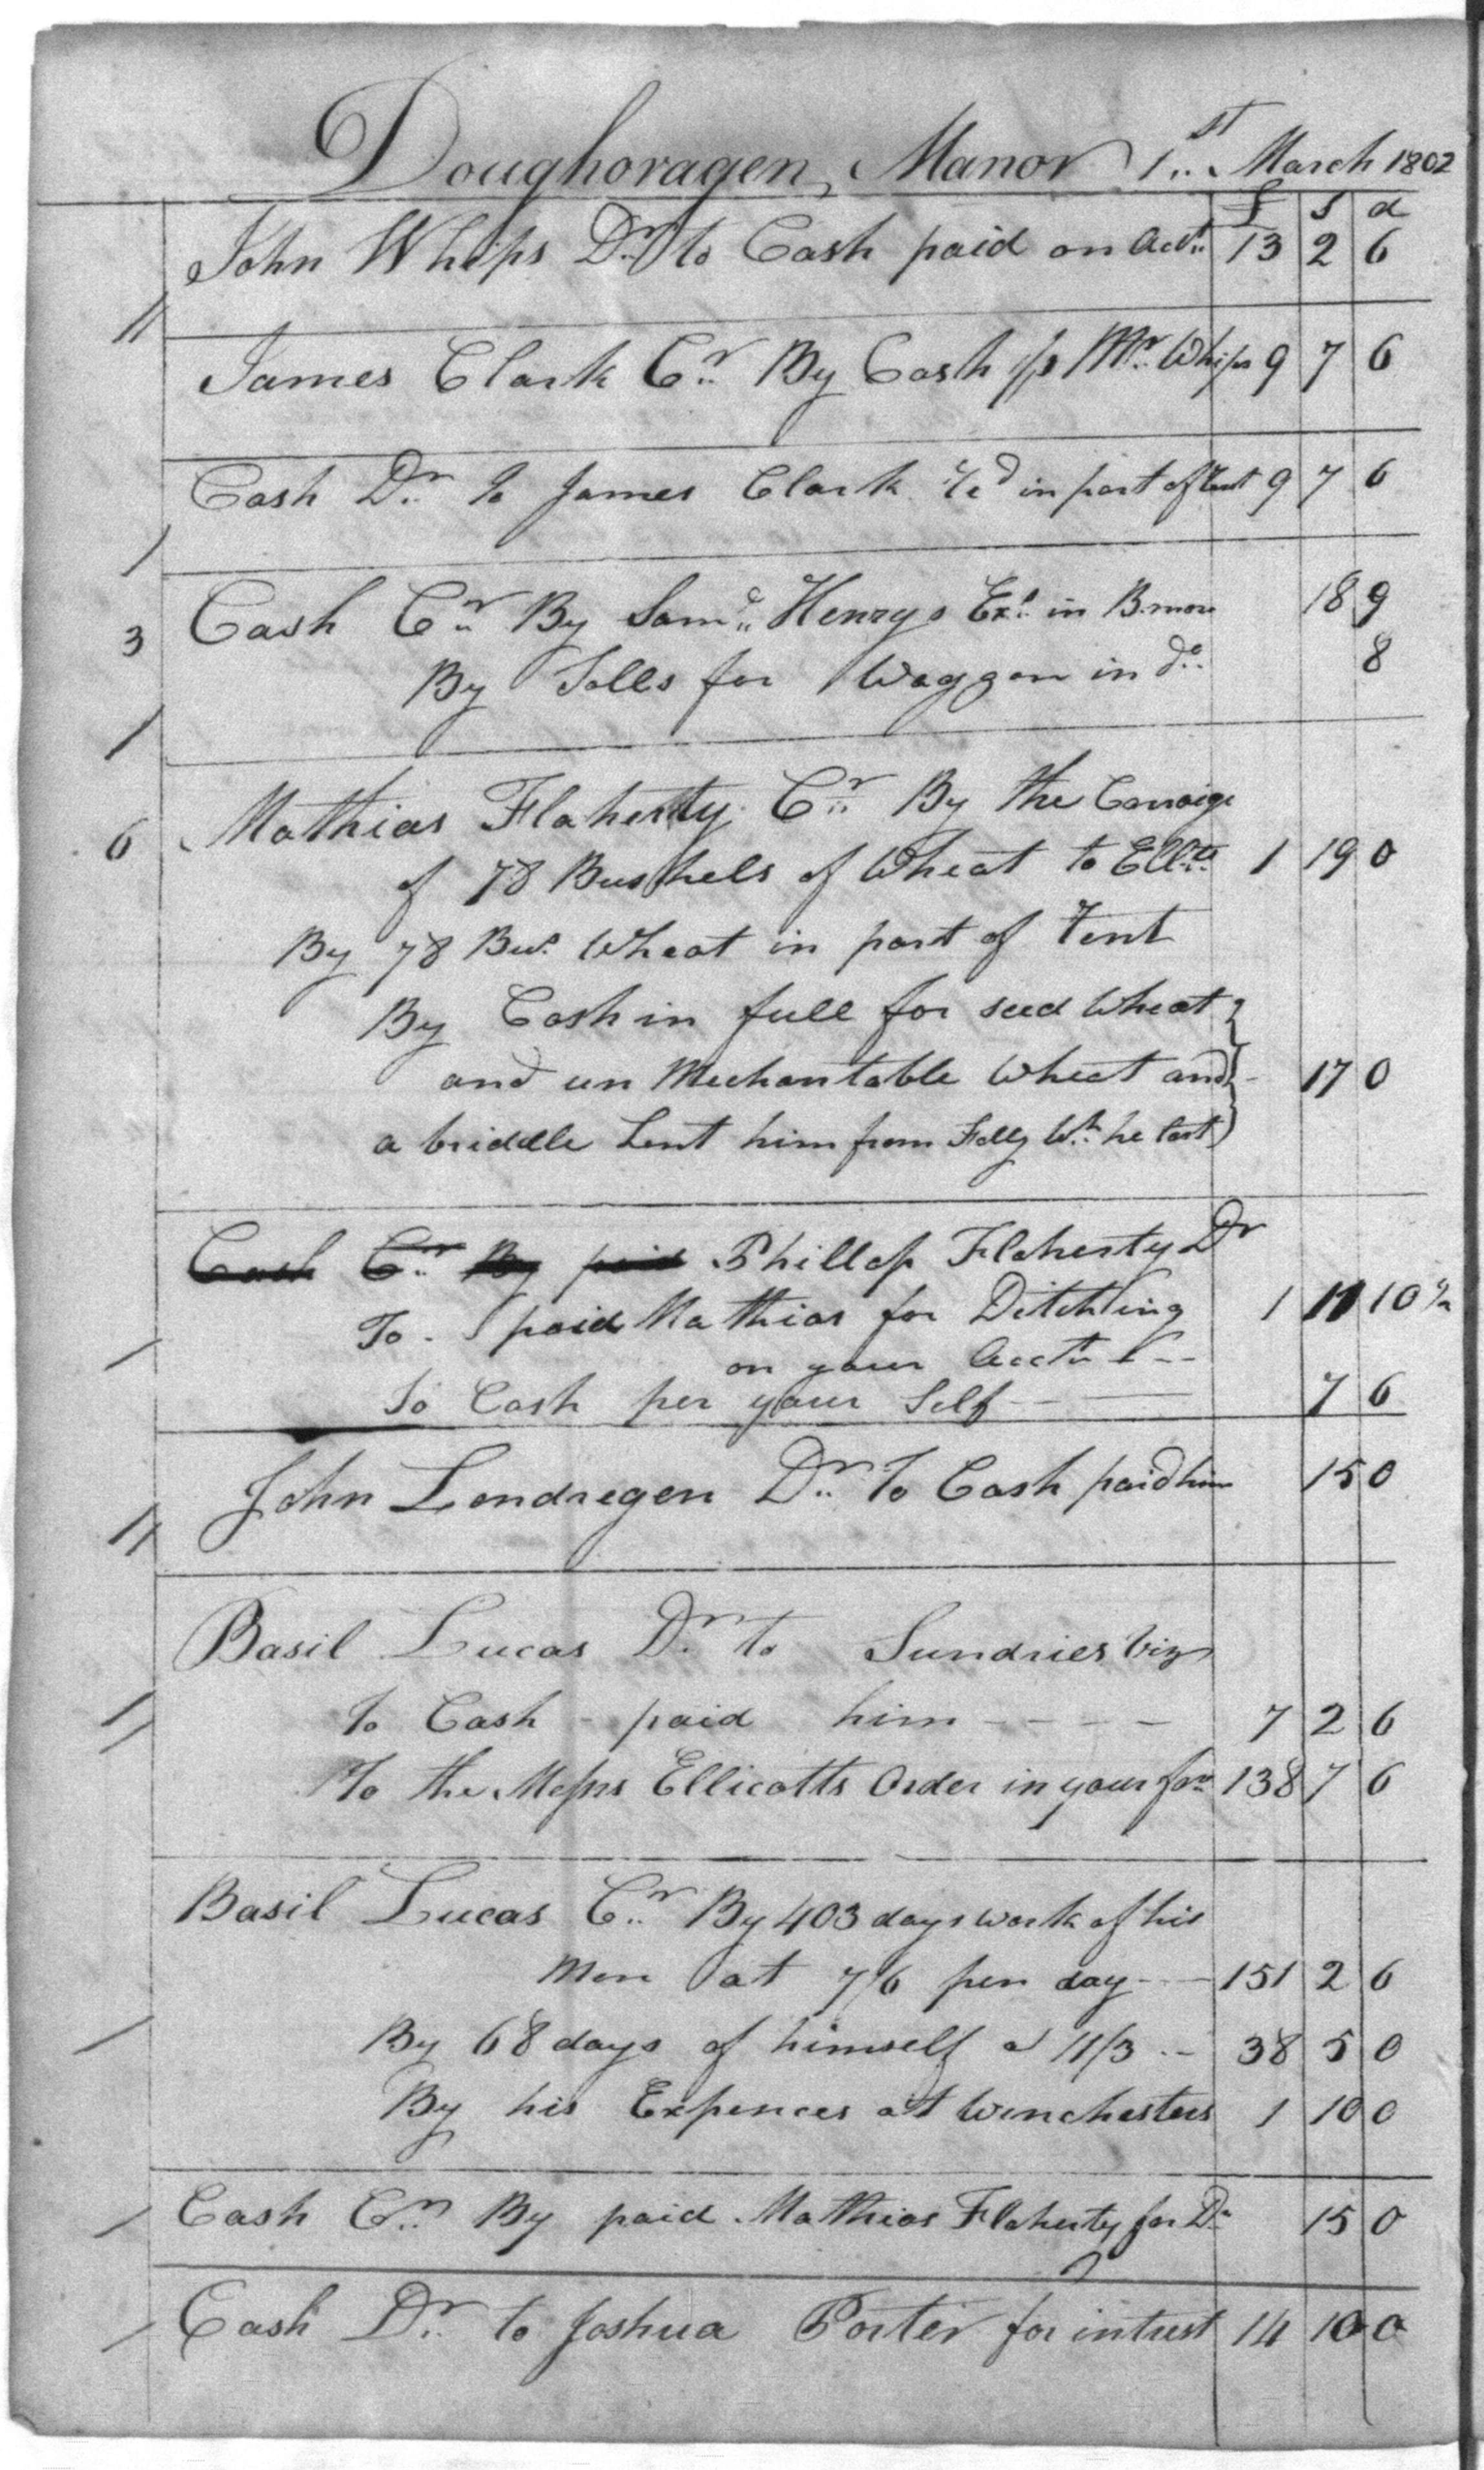 Doughoragen Manor 1st March 1802
£ S d
John Whips Dr to Cash paid on Acct 13 2 6
11
James Clark Cr By Cash p Mr Whips 9 7 6
Cash Dr to James Clark in part of Rent 9 7 6
1
3 Cash Cr By Saml Henrys Exs in Bmore 18 9
By Tolls for Waggon in do 8
1
Mathias Flaherty Cr By the Carraige
6 of 78 Bushels of Wheat to Ellts 1 19 0
By 78 Bus Wheat in part of rent
By Cash in full for seed Wheat
and un Mechantable Wheat and 17 0
a bridle Lent him from Folly Wh he lost
Cash Cr By paid Phillop Flaherty Dr
To paid Mathias for Ditching 1 11 10½
on your Acct
To Cash per your Self 7 6
John Londregen Dr To Cash paid him 15 0
11
Basil Lucas Dr to Sundries Viz
To Cash paid him 7 2 6
11
To the Messrs Ellicotts Order in your favr 138 7 6
Basil Lucas Cr By 403 days work of his
Men at 7/6 per day 151 2 6
By 68 days of himself a 11/3 38 5 0
1
By his Expences at Winchesters 1 10 0
1 Cash Cr By paid Mathias Flaherty for Do 15 0
1 Cash Dr to Joshua Porter for intrest 14 10 0